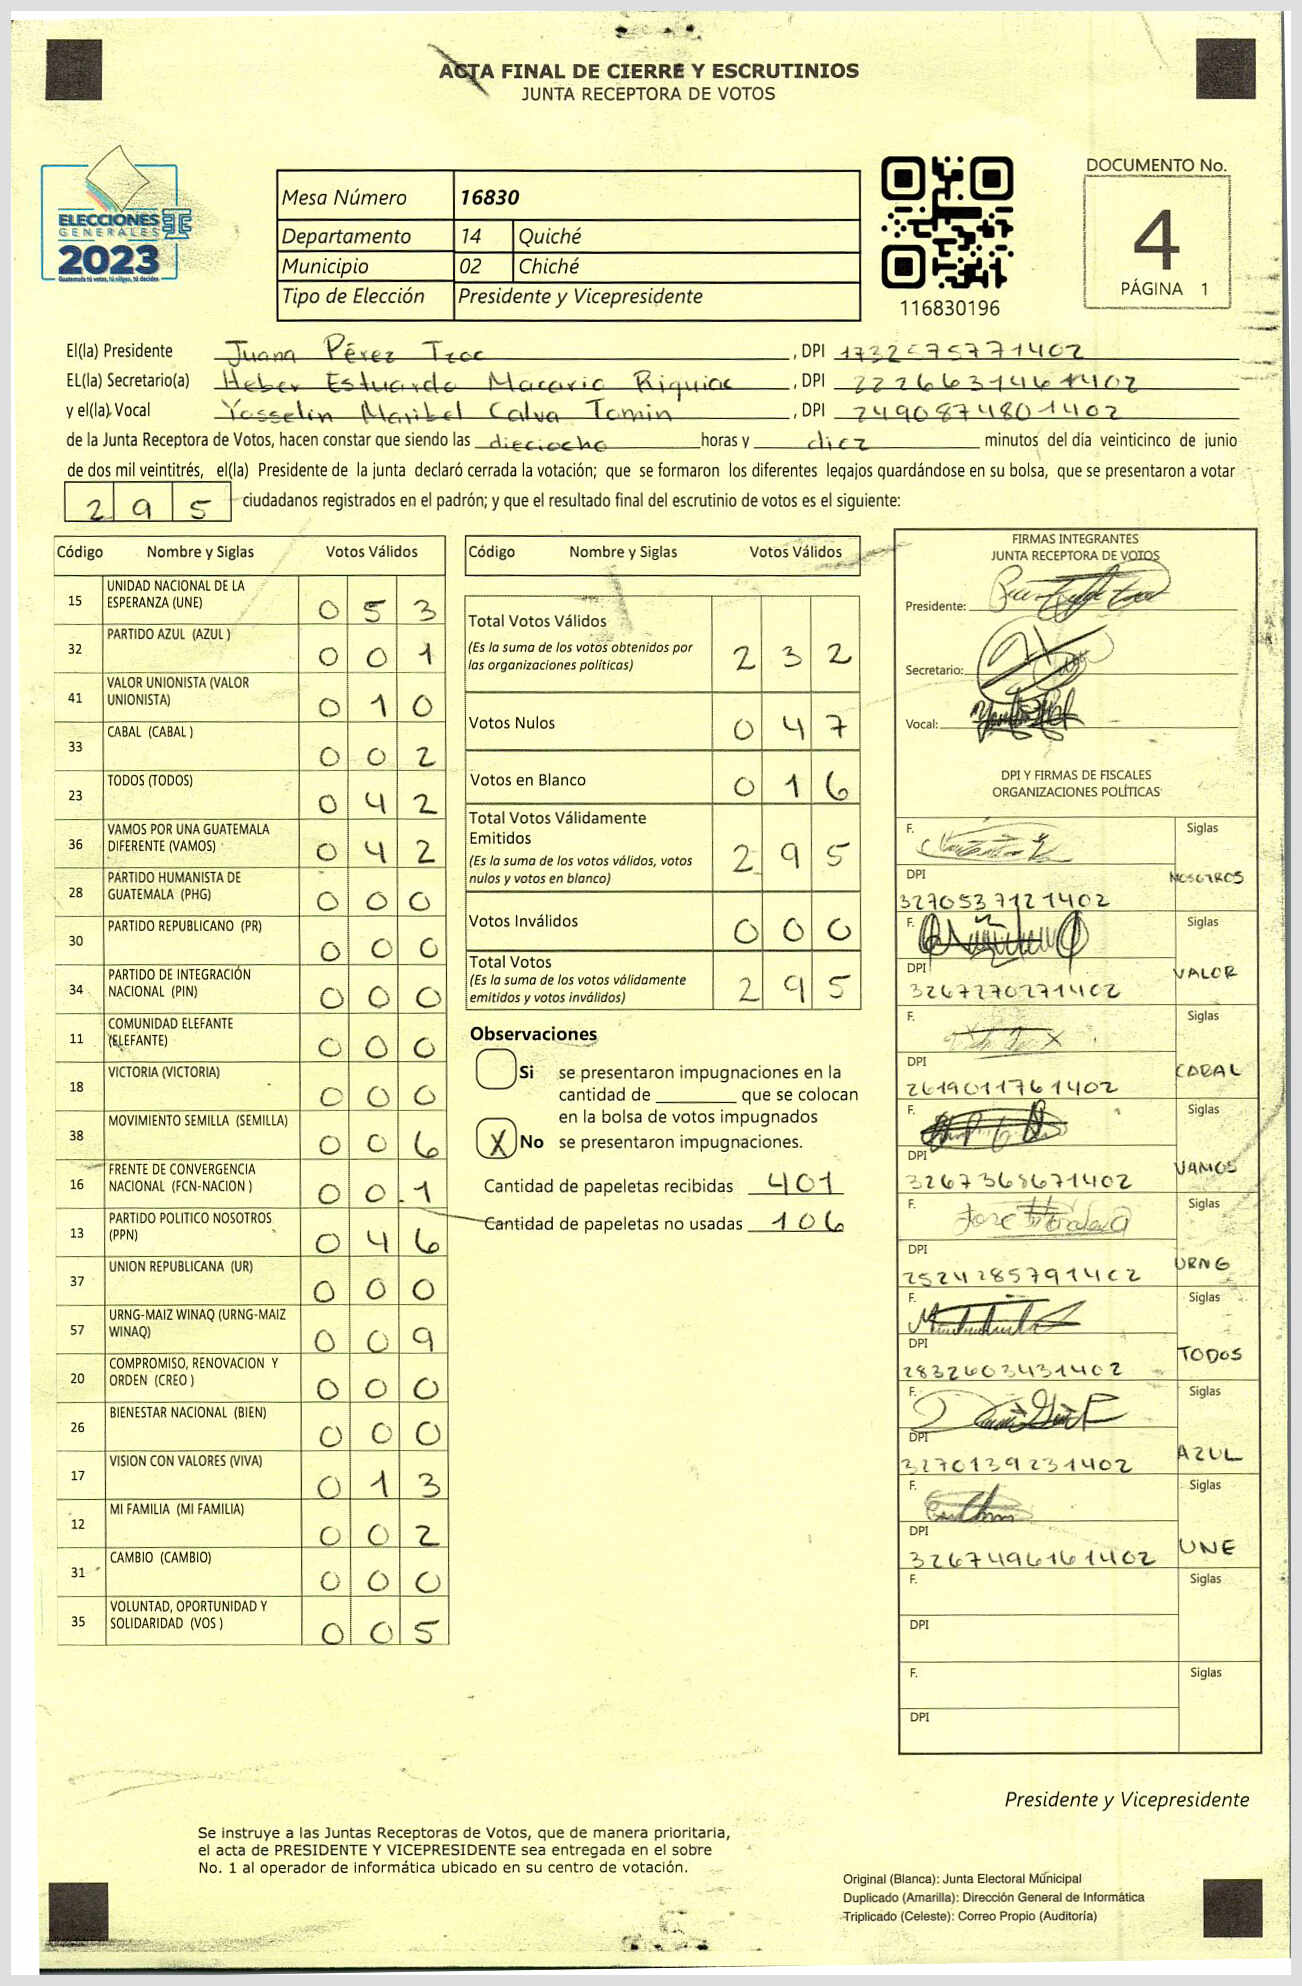 ACTA FINAL DE CIERRE Y ESCRUTINIOS
JUNTA RECEPTORA DE VOTOS
ELECCIONES
GENERALES
2023
Guatemala tú votas, tú eliges, tú decides
Mesa Número 16830
Departamento 14 Quiché
Municipio 02 Chiché
Tipo de Elección Presidente y Vicepresidente
116830196
DOCUMENTO No.
4
PÁGINA 1
El(la) Presidente Juana Pérez Tzoc , DPI 1732575771402
EL(la) Secretario(a) Heber Estuardo Macario Riquiac , DPI 2226631461402
y el(la) Vocal Yosselin Maribel Calva Tomin , DPI 2490874801402
de la Junta Receptora de Votos, hacen constar que siendo las dieciocho horas y diez minutos del día veinticinco de junio
de dos mil veintitrés, el(la) Presidente de la junta declaró cerrada la votación; que se formaron los diferentes legajos quardándose en su bolsa, que se presentaron a votar
295 ciudadanos registrados en el padrón; y que el resultado final del escrutinio de votos es el siguiente:
Código Nombre y Siglas Votos Válidos
15 UNIDAD NACIONAL DE LA ESPERANZA (UNE) 053
32 PARTIDO AZUL (AZUL ) 001
41 VALOR UNIONISTA (VALOR UNIONISTA) 010
33 CABAL (CABAL ) 002
23 TODOS (TODOS) 042
36 VAMOS POR UNA GUATEMALA DIFERENTE (VAMOS) 042
28 PARTIDO HUMANISTA DE GUATEMALA (PHG) 000
30 PARTIDO REPUBLICANO (PR) 000
34 PARTIDO DE INTEGRACIÓN NACIONAL (PIN) 000
11 COMUNIDAD ELEFANTE (ELEFANTE) 000
18 VICTORIA (VICTORIA) 000
38 MOVIMIENTO SEMILLA (SEMILLA) 006
16 FRENTE DE CONVERGENCIA NACIONAL (FCN-NACION ) 001
13 PARTIDO POLITICO NOSOTROS (PPN) 046
37 UNION REPUBLICANA (UR) 000
57 URNG-MAIZ WINAQ (URNG-MAIZ WINAQ) 009
20 COMPROMISO, RENOVACION Y ORDEN (CREO ) 000
26 BIENESTAR NACIONAL (BIEN) 000
17 VISION CON VALORES (VIVA) 013
12 MI FAMILIA (MI FAMILIA) 002
31 CAMBIO (CAMBIO) 000
35 VOLUNTAD, OPORTUNIDAD Y SOLIDARIDAD (VOS ) 005
Código Nombre y Siglas Votos Válidos
Total Votos Válidos 232
(Es la suma de los votos obtenidos por
las organizaciones políticas)
Votos Nulos 047
Votos en Blanco 016
Total Votos Válidamente
Emitidos 295
(Es la suma de los votos válidos, votos
nulos y votos en blanco)
Votos Inválidos 000
Total Votos 295
(Es la suma de los votos válidamente
emitidos y votos inválidos)
Observaciones
Si se presentaron impugnaciones en la
cantidad de ________ que se colocan
en la bolsa de votos impugnados
X No se presentaron impugnaciones.
Cantidad de papeletas recibidas 401
Cantidad de papeletas no usadas 106
FIRMAS INTEGRANTES
JUNTA RECEPTORA DE VOTOS
Presidente:
Secretario:
Vocal:
DPI Y FIRMAS DE FISCALES
ORGANIZACIONES POLÍTICAS
F. Siglas
DPI NOSOTROS
3270537121402
F. Siglas
DPI VALOR
3267270271402
F. Siglas
DPI CABAL
2619011761402
F. Siglas
DPI VAMOS
3267368671402
F. Siglas
DPI URNG
2524285791402
F. Siglas
DPI TODOS
2832603431402
F. Siglas
DPI AZUL
3270139231402
F. Siglas
DPI UNE
3267496161402
F. Siglas
DPI
F. Siglas
DPI
Presidente y Vicepresidente
Se instruye a las Juntas Receptoras de Votos, que de manera prioritaria,
el acta de PRESIDENTE Y VICEPRESIDENTE sea entregada en el sobre
No. 1 al operador de informática ubicado en su centro de votación.
Original (Blanca): Junta Electoral Municipal
Duplicado (Amarilla): Dirección General de Informática
Triplicado (Celeste): Correo Propio (Auditoría)